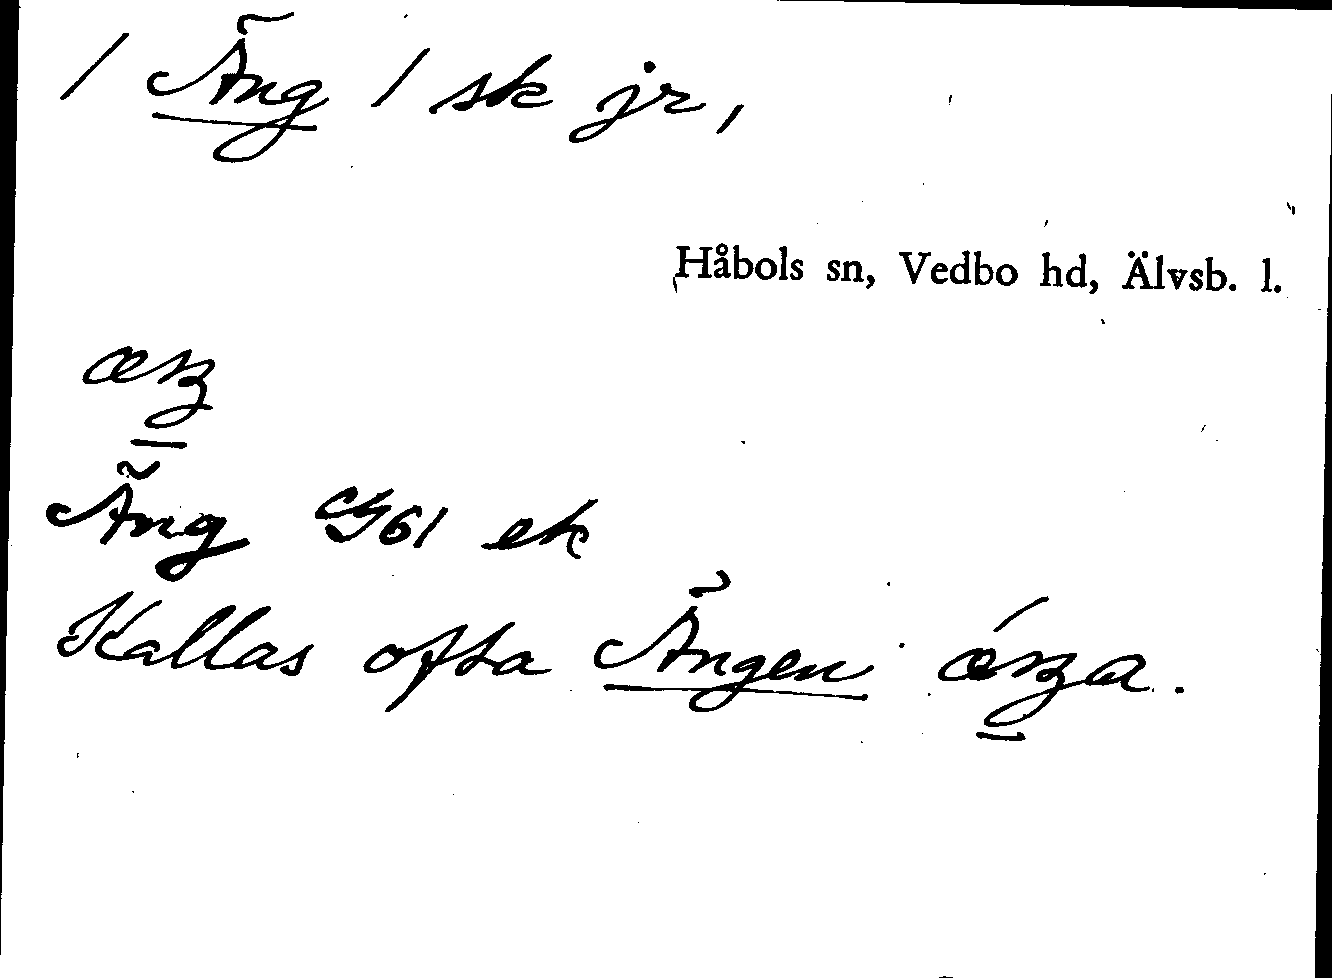 / Äng / sk jr,
Håbols sn, Vedbo hd, Älvsb. l.
Äng G61 ek
Kallas ofta Ängen